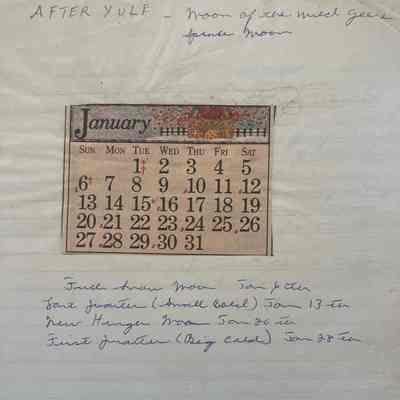 AFTER YULE - Moon of the wild Geese
Spruce Moon
January
SUN MON TUE WED THU FRI SAT
1 2 3 4 5
6 7 8 9 10 11 12
13 14 15 16 17 18 19
20 21 22 23 24 25 26
27 28 29 30 31
Full Snow Moon Jan 6 th
Last Quarter (Small Cold) Jan 13 th
New Hunger Moon Jan 20 th
First Quarter (Big Cold) Jan 28 th